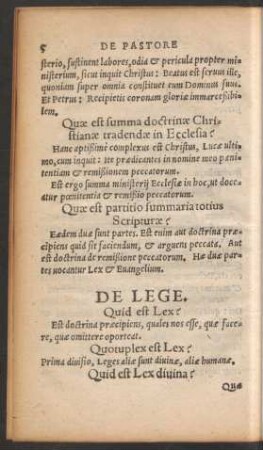 5 DE PASTORE
sterio, sustinent labores, odia & pericula propter mi-
nisterium, sicut inquit Christus: Beatus est seruus ille,
quoniam super omnia constituet eum Dominus suus.
Et Petrus: Recipietis coronam gloriæ immarcessibi-
lem.
Quæ est summa doctrinæ Chri-
stianæ tradendæ in Ecclesia?
Hanc aptissimè complexus est Christus, Lucæ ulti-
mo, cum inquit: Ite prædicantes in nomine meo pœni-
tentiam & remissionem peccatorum.
Est ergo summa ministerij Ecclesiæ in hoc, ut doce-
atur pœnitentia & remissio peccatorum.
Quæ est partitio summaria totius
Scripturæ?
Eædem duæ sunt partes. Est enim aut doctrina præ-
cipiens quid sit faciendum, & arguens peccata. Aut
est doctrina de remissione peccatorum. Hæ duæ par-
tes uocantur Lex & Euangelium.
DE LEGE.
Quid est Lex?
Est doctrina præcipiens, quales nos esse, quæ face-
re, quæ omittere oporteat.
Quotuplex est Lex?
Prima diuisio, Leges aliæ sunt diuinæ, aliæ humanæ.
Quid est Lex diuina?
Quæ